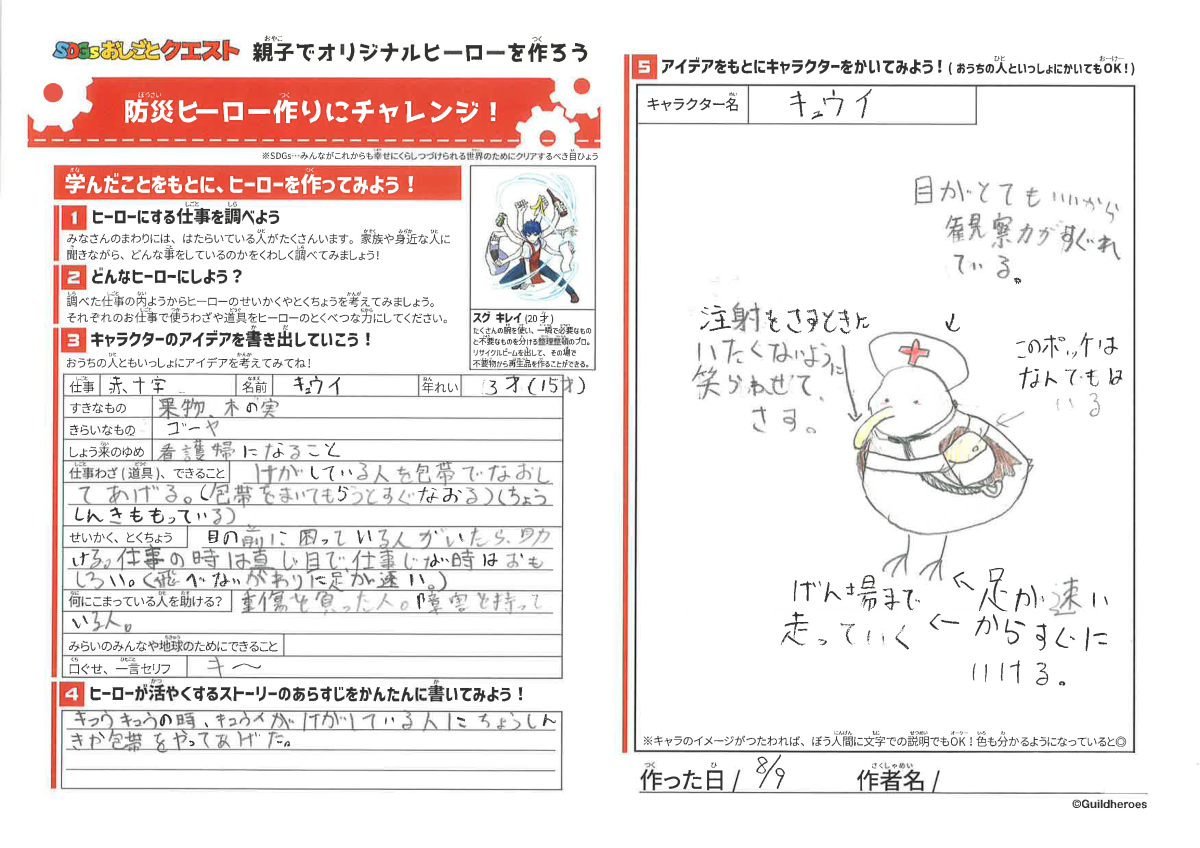 SDGsおしごとクエスト 親子でオリジナルヒーローを作ろう
防災ヒーロー作りにチャレンジ！
※SDGs…みんながこれからも幸せにくらしつづけられる世界のためにクリアするべき目ひょう
学んだことをもとに、ヒーローを作ってみよう！
1 ヒーローにする仕事を調べよう
みなさんのまわりには、はたらいている人がたくさんいます。家族や身近な人に
聞きながら、どんな事をしているのかをくわしく調べてみましょう！
2 どんなヒーローにしよう？
調べた仕事の内ようからヒーローのせいかくやとくちょうを考えてみましょう。
それぞれのお仕事で使うわざや道具をヒーローのとくべつな力にしてください。
スグ キレイ (20才)
たくさんの腕を使い、一瞬で必要なもの
と不要なものを分ける整理整頓のプロ。
リサイクルビームを出して、その場で
不要物から再生品を作ることができる。
3 キャラクターのアイデアを書き出していこう！
おうちの人ともいっしょにアイデアを考えてみてね！
仕事 赤十字 名前 キュウイ 年れい 3才(15才)
すきなもの 果物、木の実
きらいなもの ゴーヤ
しょう来のゆめ 看護婦になること
仕事わざ(道具)、できること けがしている人を包帯でなおし
てあげる。(包帯をまいてもらうとすぐなおる)(ちょう
しんきももっている)
せいかく、とくちょう 目の前に困っている人がいたら、助
ける。仕事の時は真じ目で、仕事じゃない時はおも
しろい。(飛べないかわりに足が速い。)
何にこまっている人を助ける？ 重傷を負った人。障害を持って
いる人。
みらいのみんなや地球のためにできること
口ぐせ、一言セリフ キ〜
4 ヒーローが活やくするストーリーのあらすじをかんたんに書いてみよう！
キュウキュウの時、キュウイがけがしている人にちょうしん
きか包帯をやってあげた。
5 アイデアをもとにキャラクターをかいてみよう！(おうちの人といっしょにかいてもOK！)
キャラクター名 キュウイ
目がとてもいいから
観察力がすぐれ
ている。
注射をさすときに
いたくないように
笑らわせて、
さす。
このポッケは
なんでもは
いる
足が速い
からすぐに
いける。
げん場まで
走っていく
※キャラのイメージがつたわれば、ぼう人間に文字での説明でもOK！色も分かるようになっていると◎
作った日/ 8/9 作者名/
©Guildheroes